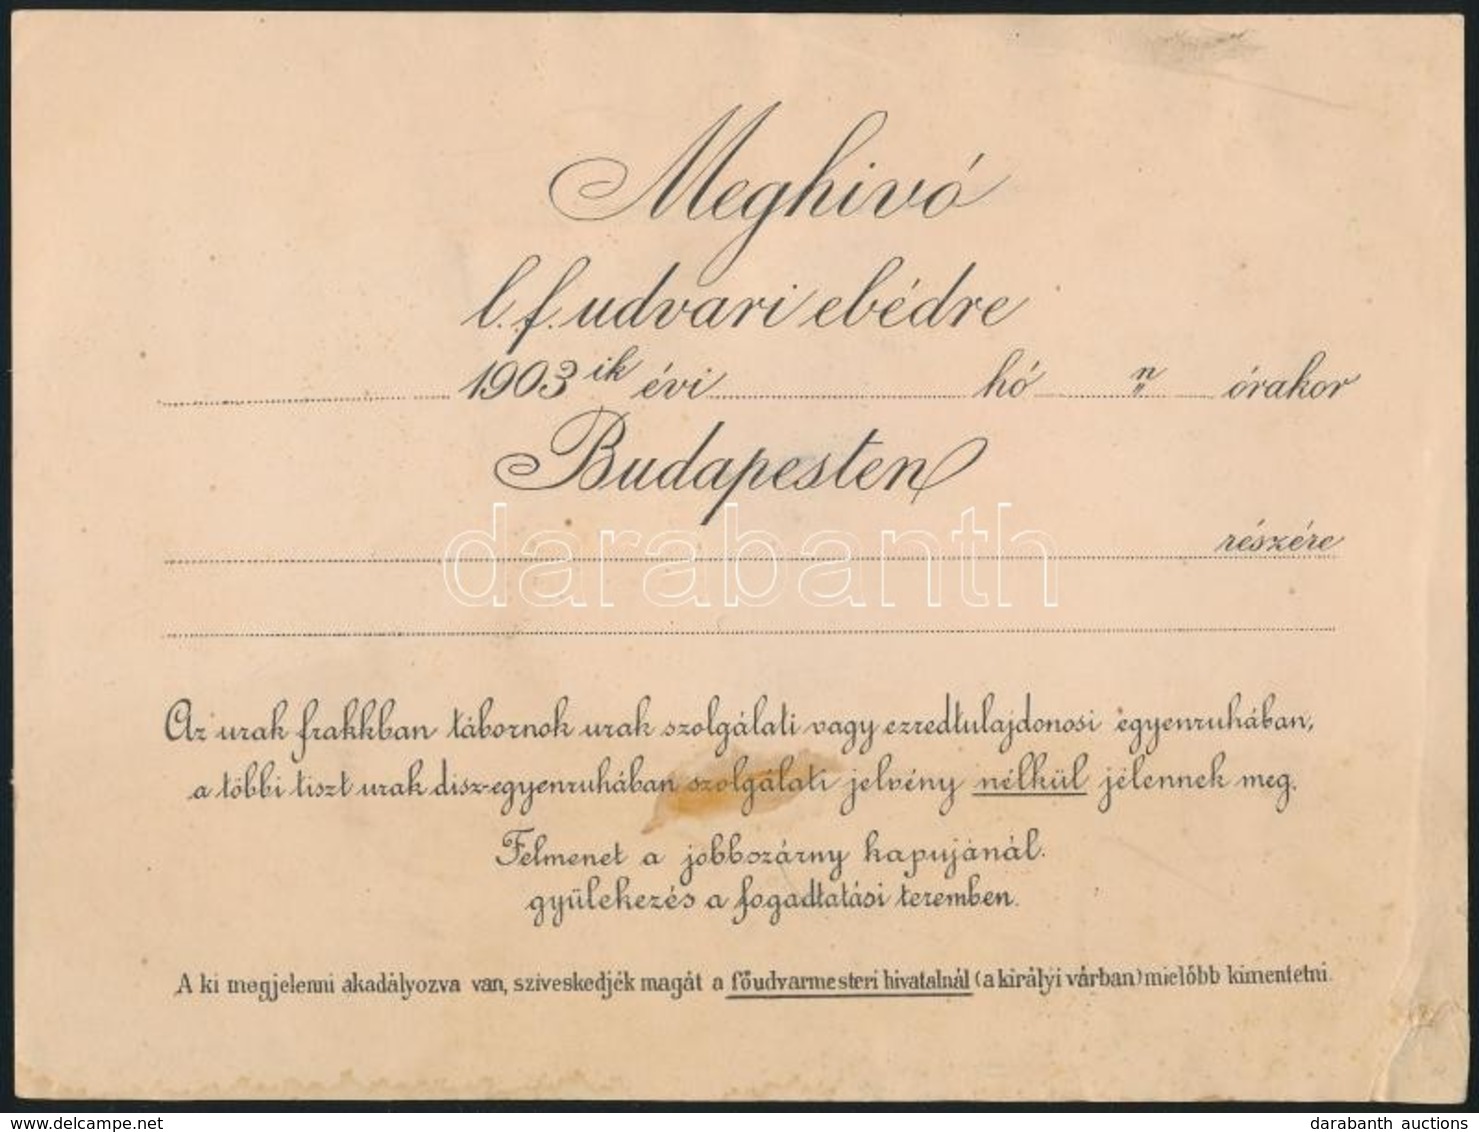 Meghivó
l. f. udvari ebédre
1903 ik évi hó n órakor
Budapesten
részére
darabanth
Az urak frakkban tábornok urak szolgálati vagy ezredtulajdonosi egyenruhában,
a többi tiszt urak disz-egyenruhában szolgálati jelvény nélkül jelennek meg.
Felmenet a jobbszárny kapujánál.
gyülekezés a fogadtatási teremben.
A ki megjelenni akadályozva van, sziveskedjék magát a főudvarmesteri hivatalnál (a királyi várban) mielőbb kimentetni.
darabanth auctions